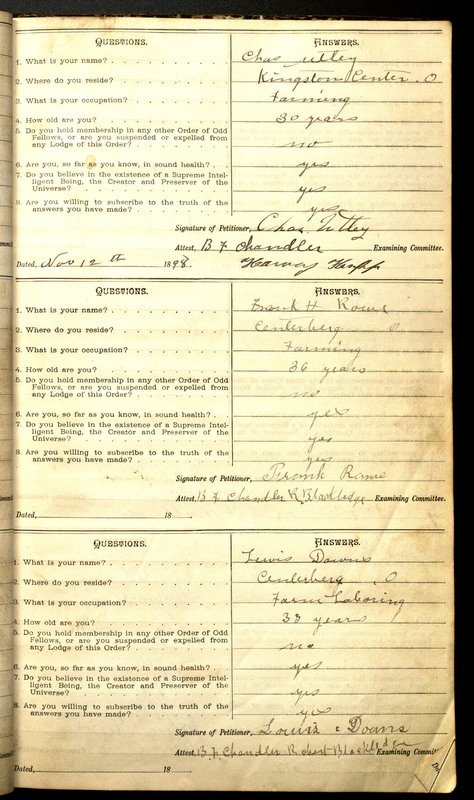 QUESTIONS. ANSWERS.
1. What is your name? Chas Utley
2. Where do you reside? Kingston Center . O
3. What is your occupation? Farming
4. How old are you? 30 years
5. Do you hold membership in any other Order of Odd
Fellows, or are you suspended or expelled from
any Lodge of this Order? no
6. Are you, so far as you know, in sound health? yes
7. Do you believe in the existence of a Supreme Intel-
ligent Being, the Creator and Preserver of the
Universe? yes
8. Are you willing to subscribe to the truth of the
answers you have made? yes
Signature of Petitioner, Chas Utley
Attest, B F Chandler Examining Committee.
Dated, Nov 12th 1898. Harvey
QUESTIONS. ANSWERS.
1. What is your name? Frank H Rowe
2. Where do you reside? Centerberg O.
3. What is your occupation? Farming
4. How old are you? 36 years
5. Do you hold membership in any other Order of Odd
Fellows, or are you suspended or expelled from
any Lodge of this Order? no
6. Are you, so far as you know, in sound health? yes
7. Do you believe in the existence of a Supreme Intel-
ligent Being, the Creator and Preserver of the
Universe? yes
8. Are you willing to subscribe to the truth of the
answers you have made? yes
Signature of Petitioner, Frank Rowe
Attest, B F Chandler R. Blackledge Examining Committee.
Dated, 18
QUESTIONS. ANSWERS.
1. What is your name? Lewis Downs
2. Where do you reside? Centerberg , O
3. What is your occupation? Farm Laboring
4. How old are you? 33 years
5. Do you hold membership in any other Order of Odd
Fellows, or are you suspended or expelled from
any Lodge of this Order? no
6. Are you, so far as you know, in sound health? yes
7. Do you believe in the existence of a Supreme Intel-
ligent Being, the Creator and Preserver of the
Universe? yes
8. Are you willing to subscribe to the truth of the
answers you have made? yes
Signature of Petitioner, Louis Doans
Attest, B. F. Chandler Robert Blackledge Examining Commit
Dated, 18